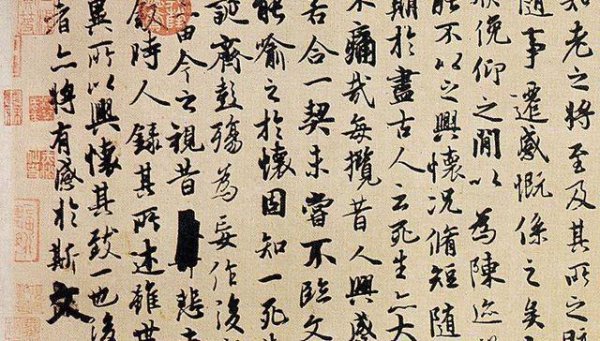 知老之將至及其所之既
隨事遷感慨係之矣
欣俛仰之閒以為陳迹
能不以之興懷況脩短隨
期於盡古人云死生亦大
不痛哉每攬昔人興感
若合一契未嘗不臨文
能喻之於懷固知一死
誕齊彭殤為妄作後
由今之視昔悲夫
敘時人錄其所述雖世
異所以興懷其致一也後
者亦將有感於斯文